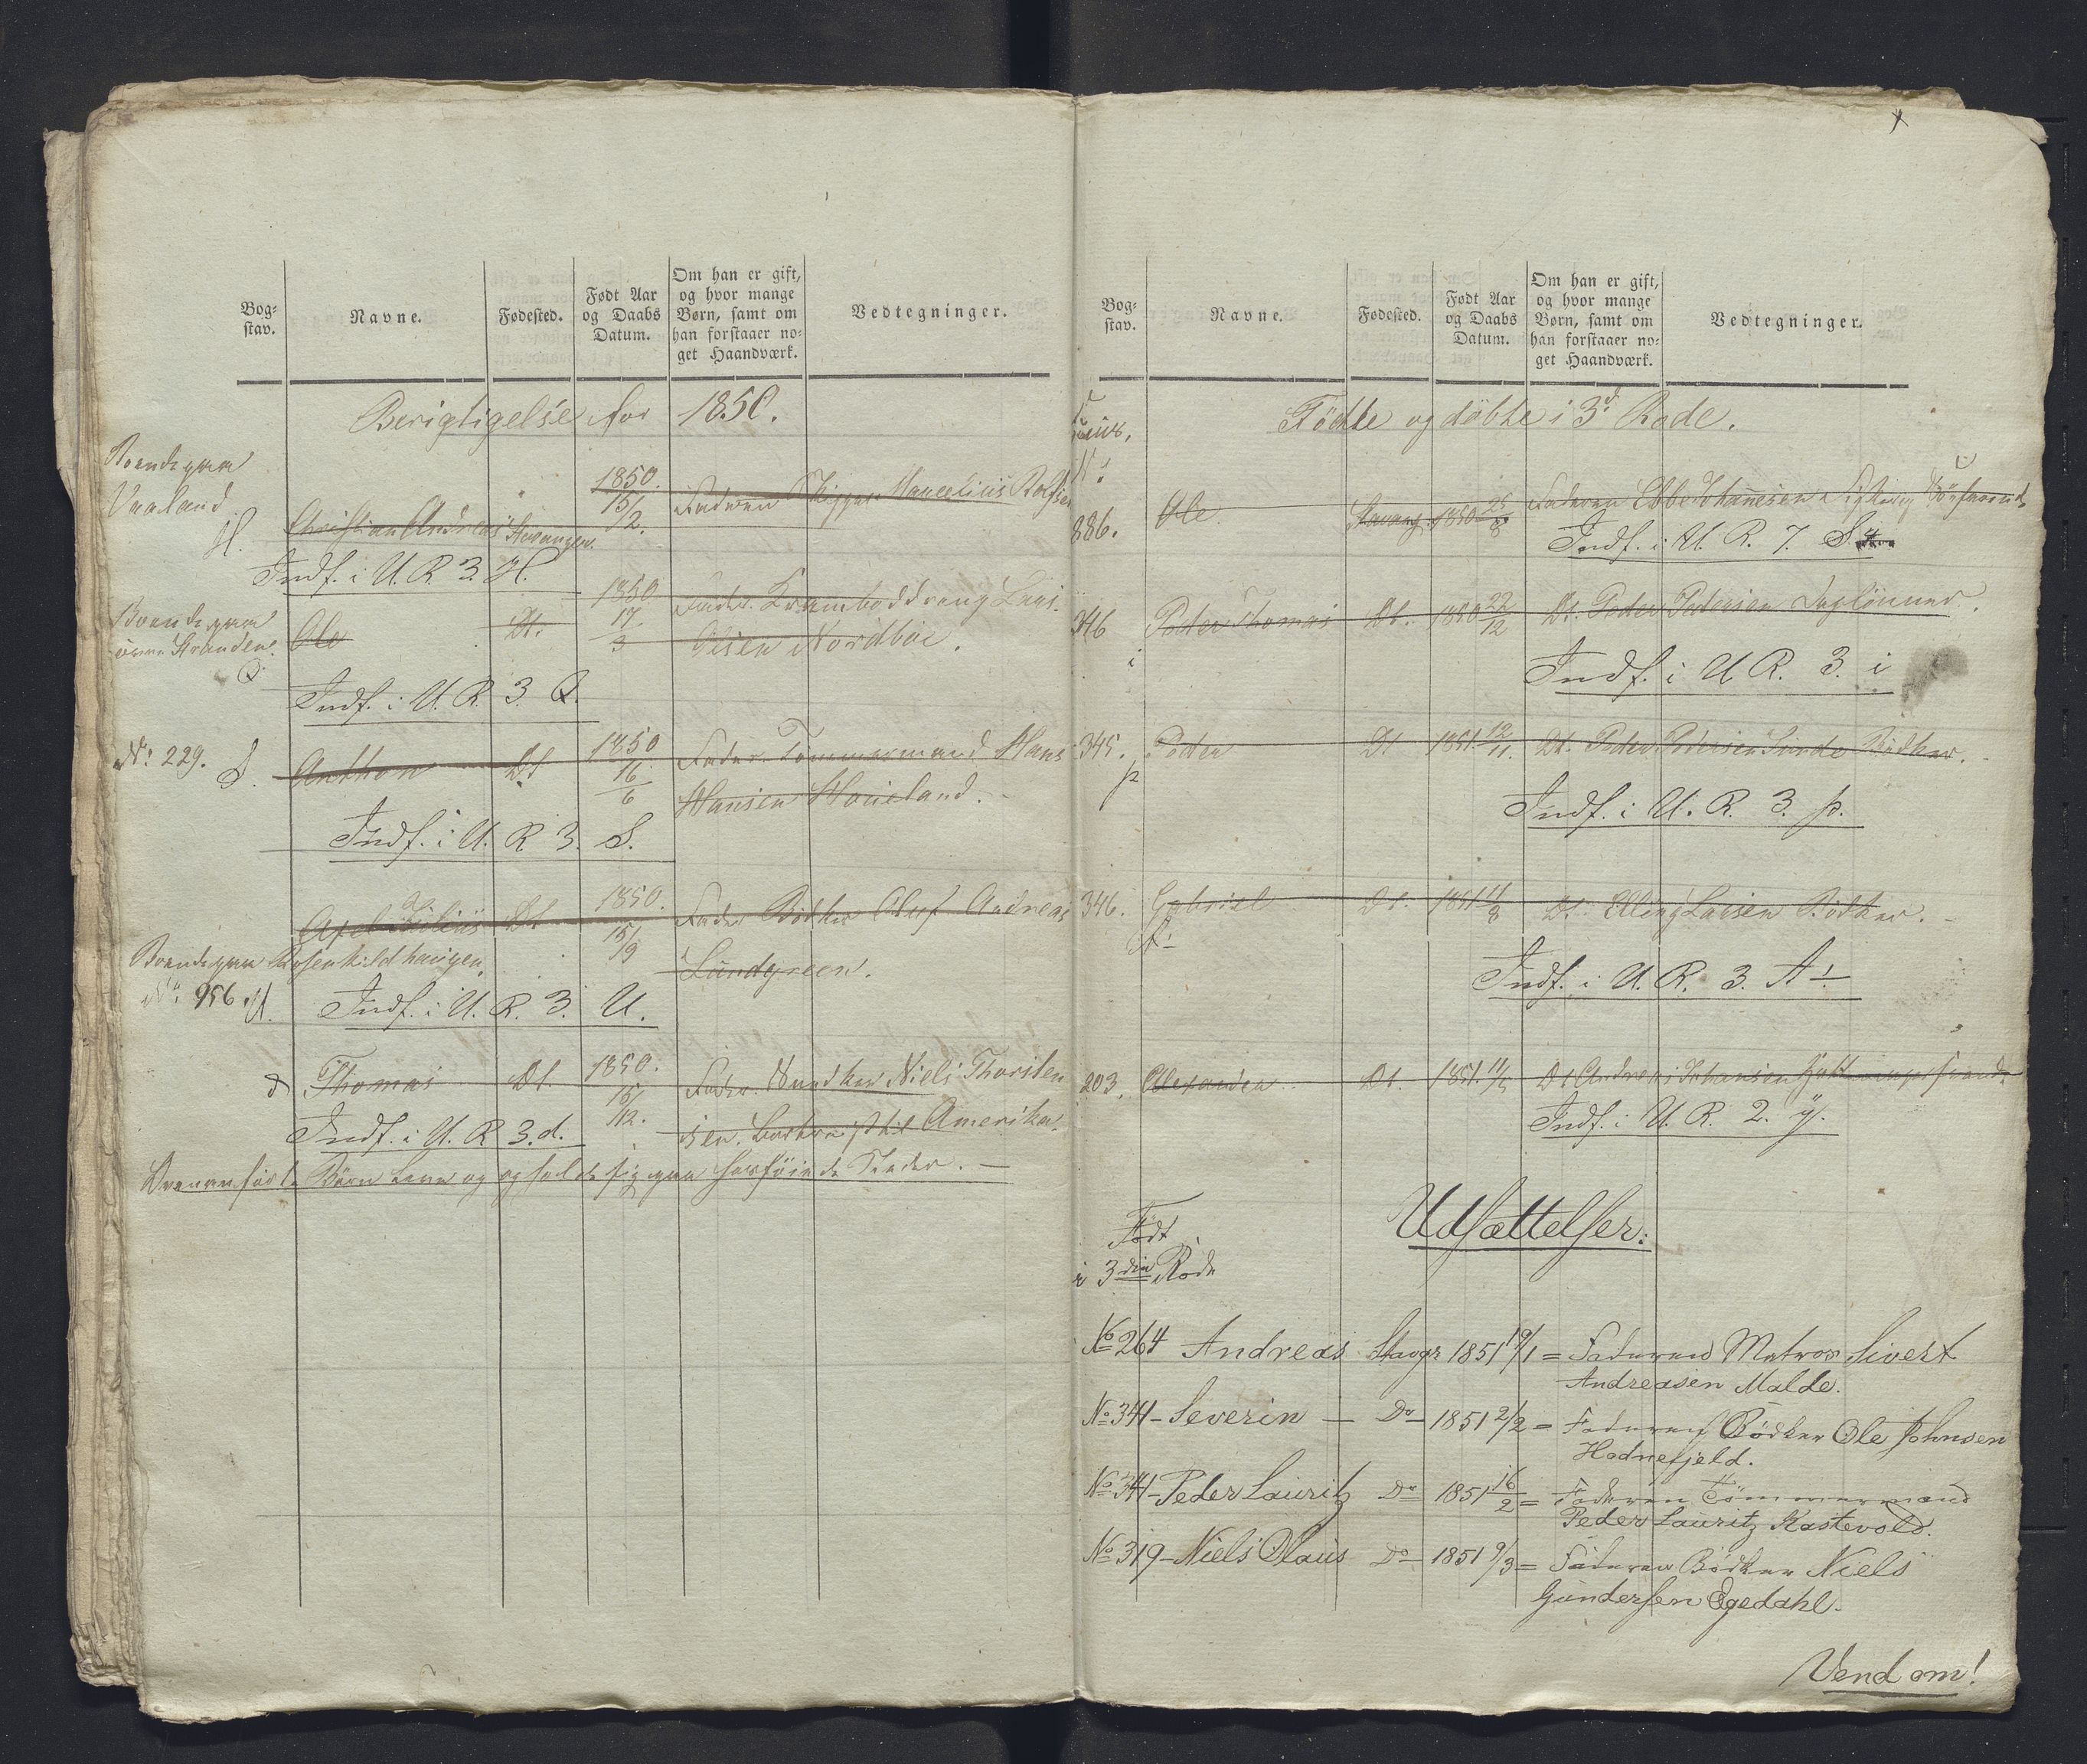 Bog-
stav.
Navne.
Fødested.
Født Aar
og Daabs
Datum.
Om han er gift,
og hvor mange
Børn, samt om
han forstaaer no-
get Haandværk.
Vedtegninger.
Berigtigelse for 1850.
Boende paa
Vaaland
H. Christian Andreas Stavanger. 1850 15/2. Faderen Skipper
Indf. i U. R. 3. H.
Boende paa
Stranden.
Q. Ole Dt. 1850 17/3 Fader. Kramboddreng Lars
Olsen Nordbøe.
Indf. i U. R. 3. Q.
No. 229. S. Anthon Dt 1850 16/6 Fader Tømmermand Hans
Hansen Haueland.
Indf. i U. R. 3. S.
Axel Dt 1850. 15/9 Fader Bødker Oluf Andreas
Lundgreen.
Boende paa Rosenkildhaugen
No. 956 U. Indf. i U. R. 3. U.
d Thomas Dt. 1850. 15/12. Fader Niels Thorsten
sen. til Amerika.
Indf. i U. R. 3. d.
Børn og opholde sig paa Steder. —
Bog-
stav.
Navne.
Fødested.
Født Aar
og Daabs
Datum.
Om han er gift,
og hvor mange
Børn, samt om
han forstaaer no-
get Haandværk.
Vedtegninger.
Födte og döbte i 3d Rode.
886. Ole Stavang. 1850 25/8 Faderen Ebbe Johannesen
Indf. i U. R. 7. S.
346 Peder Thomas Dt. 1850 22/12 Dt. Peder Pedersen Daglönner.
i
Indf. i U. R. 3. i
345. Peder Dt 1851 12/11. Dt. Peder Pedersen Bödker.
p
Indf. i U. R. 3. p.
346. Gabriel Dt. 1851 Dt. Elling Larsen Bödker.
Indf. i U. R. 3. A1.
203. Alexander Dt. 1851 Dt Andreas Johansen
Indf. i U. R. 2. ÿ.
Udsættelser:
Födt
i 3die Rode
No 264 Andreas Stavgr 1851 19/1 = Faderen Matros Sivert
Andreasen Malde.
No 341 - Severin — Do - 1851 2/2 = Faderen Bödker Ole Johnsen
Hodnefjeld.
No 341 - Peder Lauritz Do - 1851 16/2 = Faderen Tömmermand
Peder Lauritz Kastevold.
No 319 - Niels Olaus Do - 1851 9/3 = Faderen Bödker Niels
Gundersen Egedahl.
Vend om!